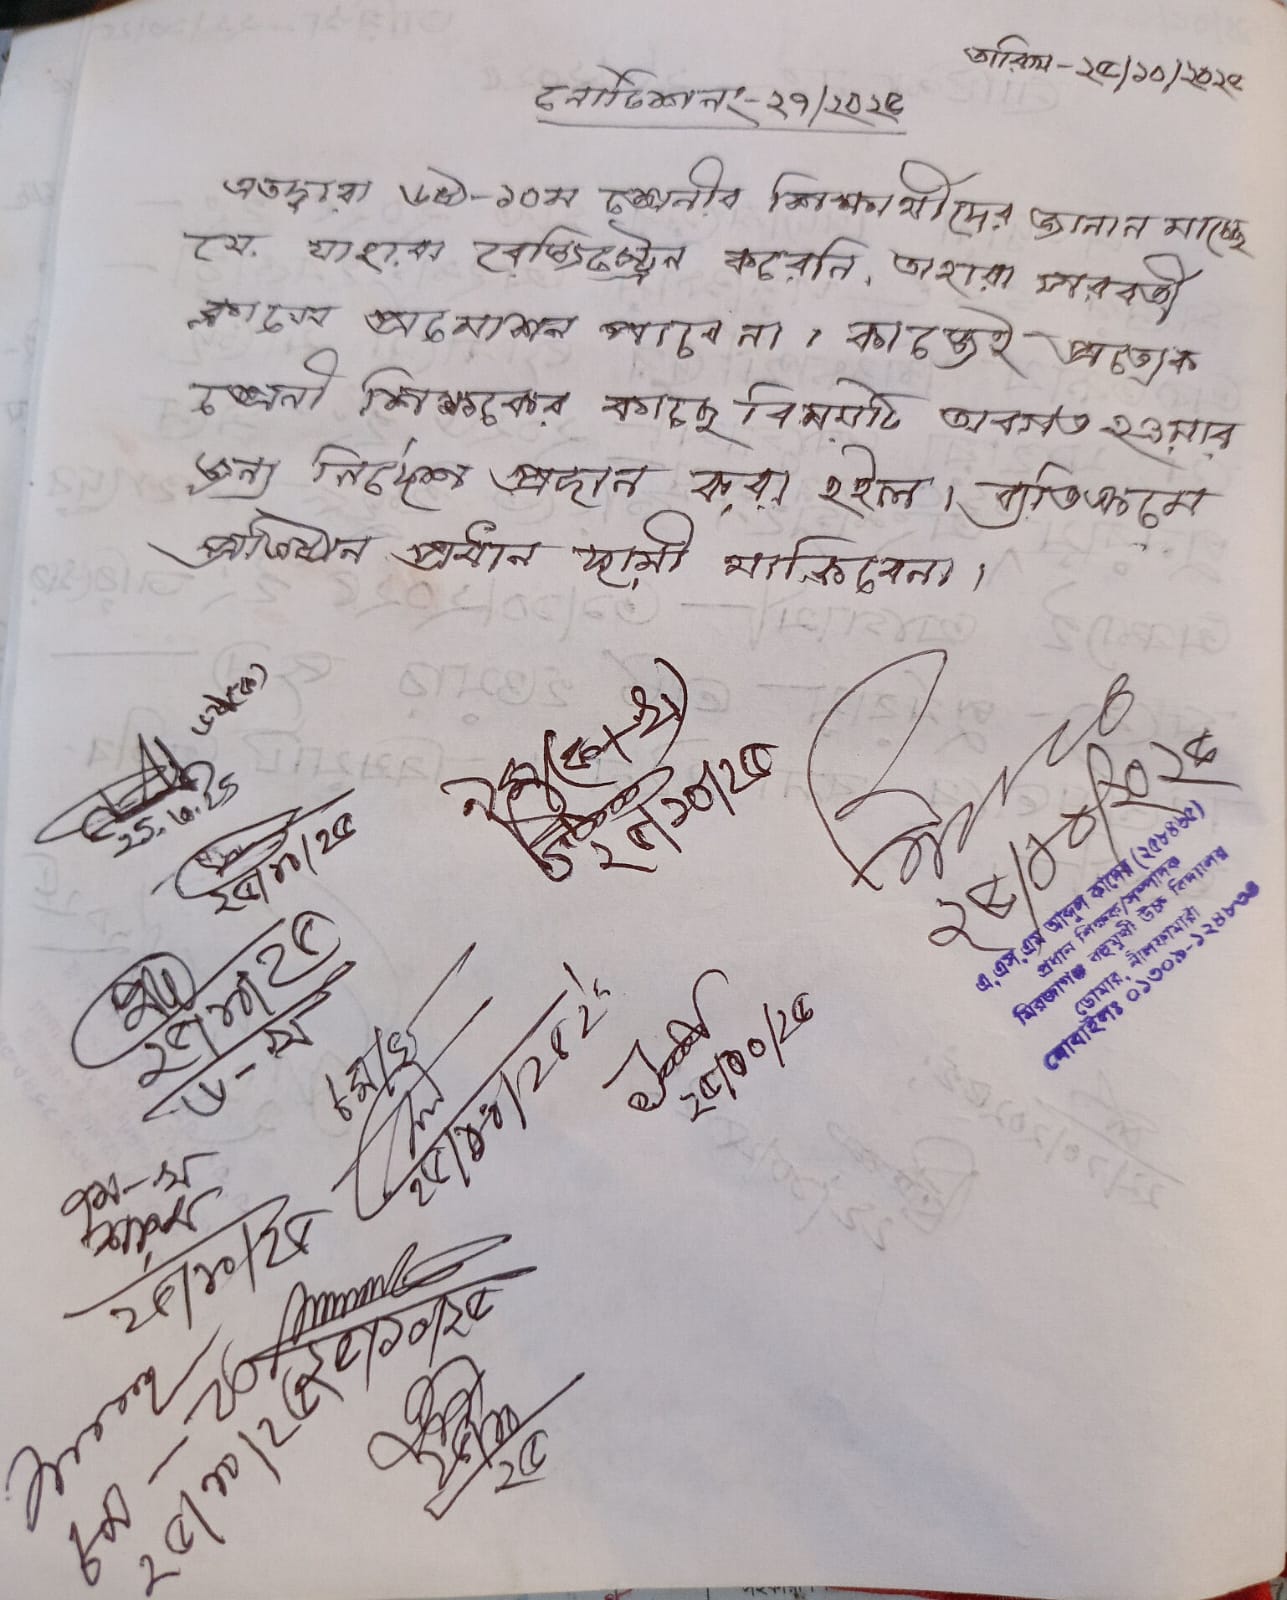 তারিখ-২৫/১০/২০২৫
নোটিশ নং-২৭/২০২৫
এতদ্বারা ৬ষ্ঠ-১০ম শ্রেনীর শিক্ষার্থীদের জানান যাচ্ছে
যে, যাহারা রেজিস্ট্রেশন করেনি, তাহারা পরবর্তী
ক্লাসে প্রমোশন পাবে না। কাজেই প্রত্যেক
শ্রেনী শিক্ষকের কাছে বিষয়টি অবগত হওয়ার
জন্য নির্দেশ প্রদান করা হইল। ব্যতিক্রমে
প্রতিষ্ঠান প্রধান দায়ী থাকিবেনা।
৬ষ্ঠ(ক)
২৫/১০/২৫
২৫/১০/২৫
৬-খ
৭ম-খ
২৫/১০/২৫
২৫/১০/২৫
৮ম-
২৫/১০/২৫
২৫/১০/২৫
৮ম/খ
২৫/১০/২৫
নবম(ক+খ)
২৫/১০/২৫
২৫/১০/২৫
২৫/১০/২০২৫
এ.এস.এম আব্দুল কাদের (২৫৮৪৬৫)
প্রধান শিক্ষক/সম্পাদক
মিরজাগঞ্জ বহুমুখী উচ্চ বিদ্যালয়
ডোমার, নীলফামারী
মোবাইলঃ ০১৩০৯-১২৪৮৩৩